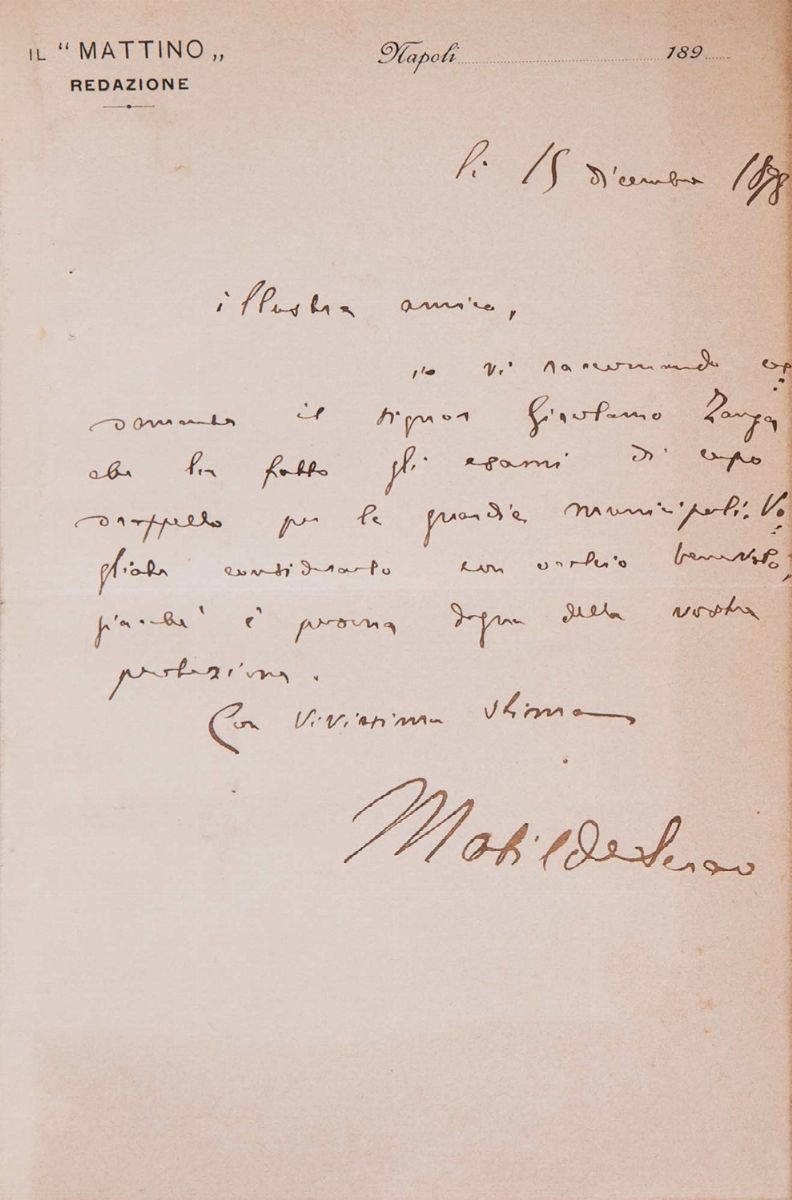 IL “MATTINO„
REDAZIONE
Napoli 189
li 15 dicembre 1898
illustre amico,
io vi raccomando
il signor Girolamo Zanga
che ha fatto gli esami di capo
drappello per le guardie municipali. Vo=
gliate considerarlo con occhio benevolo,
giacchè è persona degna della vostra
protezione.
Con vivissima stima
Matilde Serao